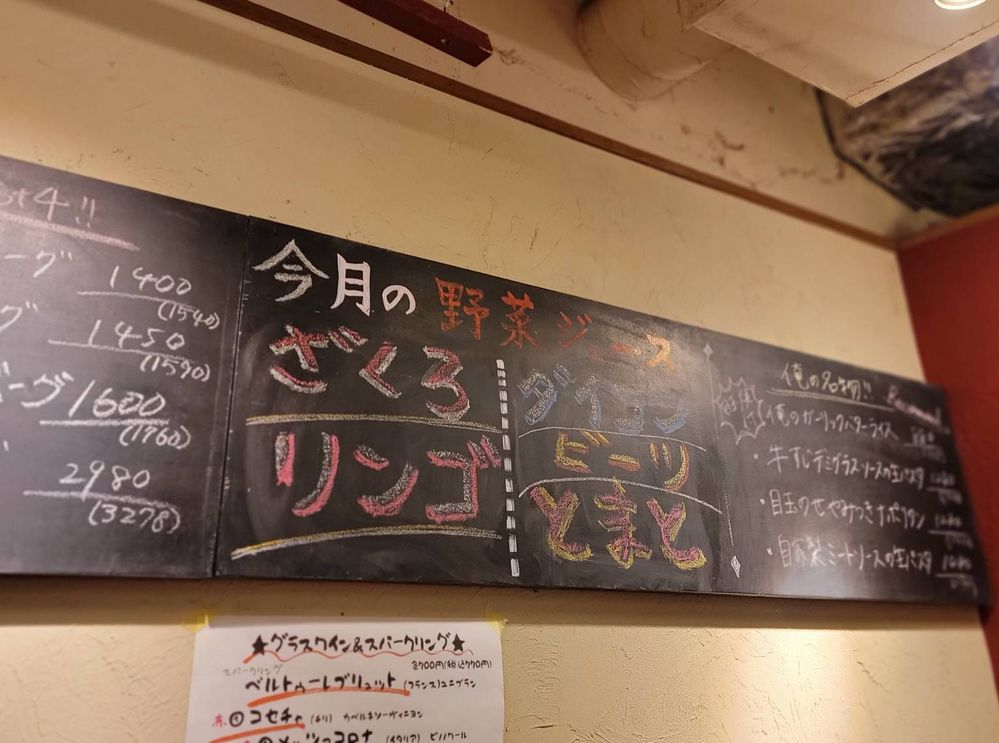 4!!
ーグ 1400
(1540)
グ 1450
(1590)
バーグ 1600
(1760)
2980
(3278)
今月の野菜ジュース
ざくろ
リンゴ
ダイコン
ビーツ
とまと
俺の名物!!
俺のガーリックバターライス
・牛すじデミグラスソースの生パスタ
・目玉のせやみつきナポリタン
・自家製ミートソースの生パスタ
★グラスワイン&スパークリング★
各700円(税込770円)
スパークリング
ベルトゥーレブリュット (フランス)ユニブラン
赤 ①コセチャ (チリ) カベルネソーヴィニヨン
(イタリア) ピノノワール